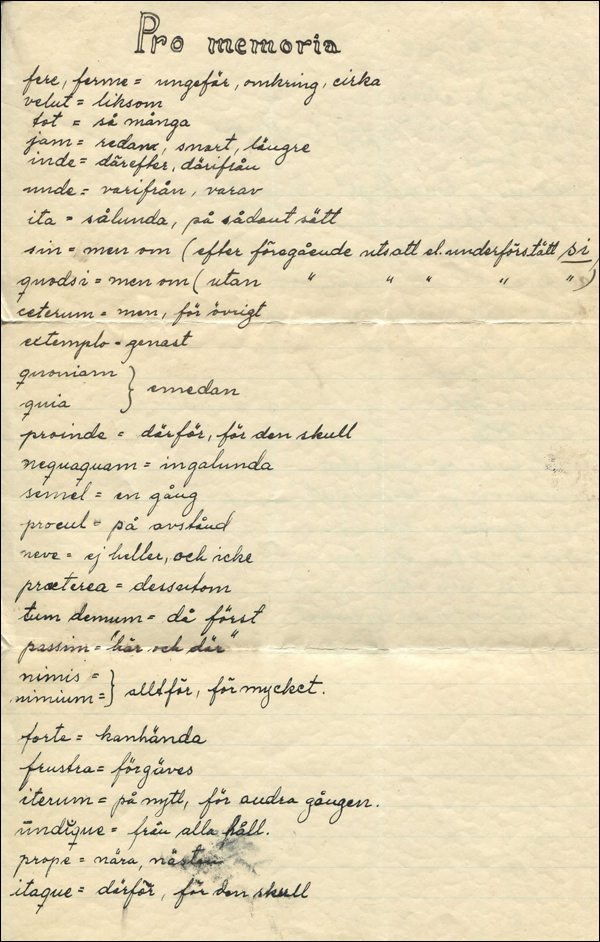 Pro memoria
fere, ferme = ungefär, omkring, cirka
velut = liksom
tot = så många
jam = redan, snart, längre
inde = därefter, därifrån
unde = varifrån, varav
ita = sålunda, på sådant sätt
sin = men om (efter föregående utsatt el. underförstått si)
quodsi = men om (utan " " " " ")
ceterum = men, för övrigt
extemplo = genast
quoniam
quia } emedan
proinde = därför, för den skull
nequaquam = ingalunda
semel = en gång
procul = på avstånd
neve = ej heller, och icke
præterea = dessutom
tum demum = då först
passim = "här och där"
nimis =
nimium = } alltför, för mycket.
forte = kanhända
frustra = förgäves
iterum = på nytt, för andra gången.
ūndĭque = från alla håll.
prope = nära, nästan
itaque = därför, för den skull